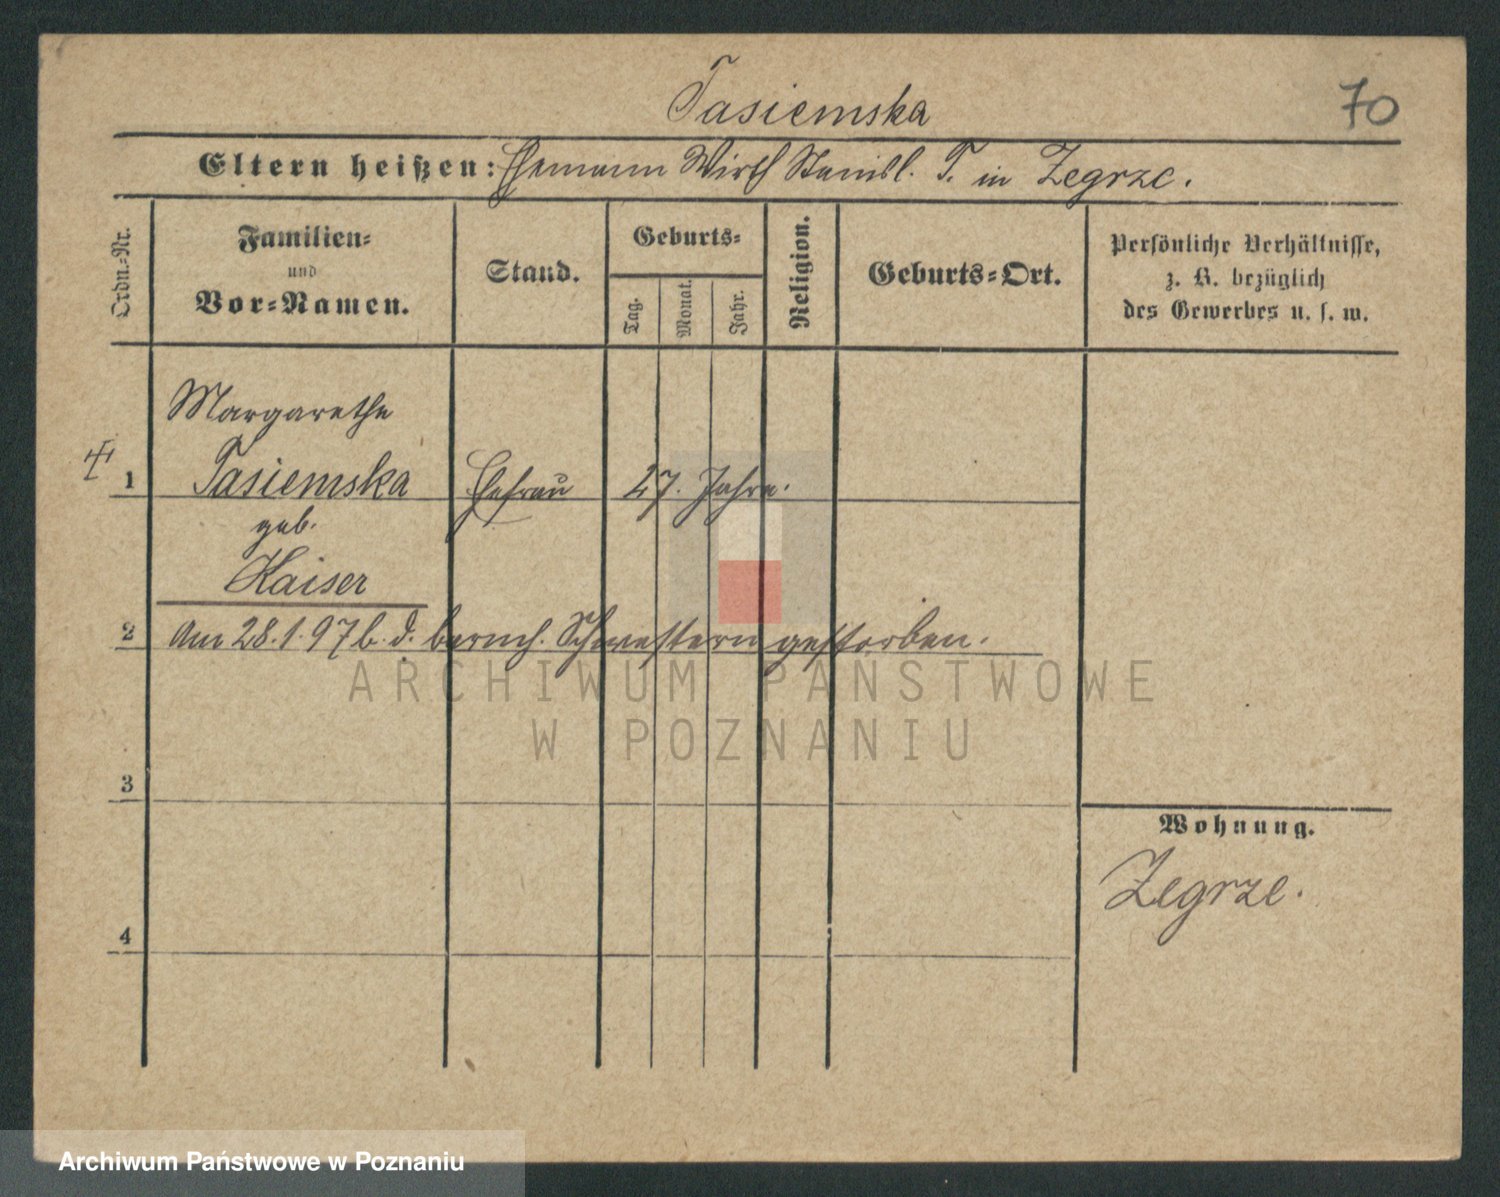 Tasiemska
70
Eltern heißen: Ehemann Wirth Stanisl. T. in Zegrze.
Ordn.-Nr.
Familien-
und
Vor-Namen.
Stand.
Geburts-
Tag.
Monat.
Jahr.
Religion.
Geburts-Ort.
Persönliche Verhältnisse,
z. B. bezüglich
des Gewerbes u. s. w.
Margarethe
1 Tasiemska Ehefrau 27. Jahre.
geb.
Kaiser
2 Am 28.1.97 b. d. barmh. Schwestern gestorben.
ARCHIWUM PAŃSTWOWE
W POZNANIU
3
Wohnung.
Zegrze.
4
Archiwum Państwowe w Poznaniu